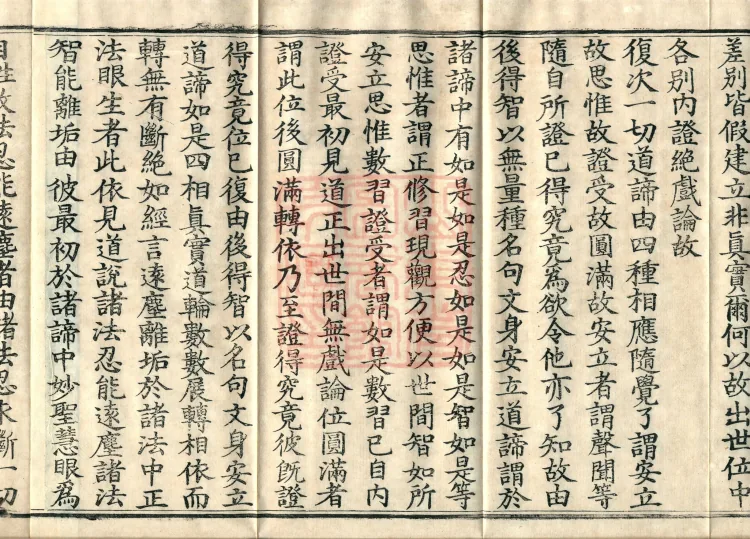 差別皆假建立非真實爾何以故出世位中
各別內證絕戲論故
復次一切道諦由四種相應隨覺了謂安立
故思惟故證受故圓滿故安立者謂聲聞等
隨自所證已得究竟為欲令他亦了知故由
後得智以無量種名句文身安立道諦謂於
諸諦中有如是如是忍如是如是智如是等
思惟者謂正修習現觀方便以世間智如所
安立思惟數習證受者謂如是數習已自內
證受最初見道正出世間無戲論位圓滿者
謂此位後圓滿轉依乃至證得究竟彼既證
得究竟位已復由後得智以名句文身安立
道諦如是四相真實道輪數數展轉相依而
轉無有斷絕如經言遠塵離垢於諸法中正
法眼生者此依見道說諸法忍能遠塵諸法
智能離垢由彼最初於諸諦中妙聖慧眼為
自性故法忍能遠塵者由諸法忍永斷一切